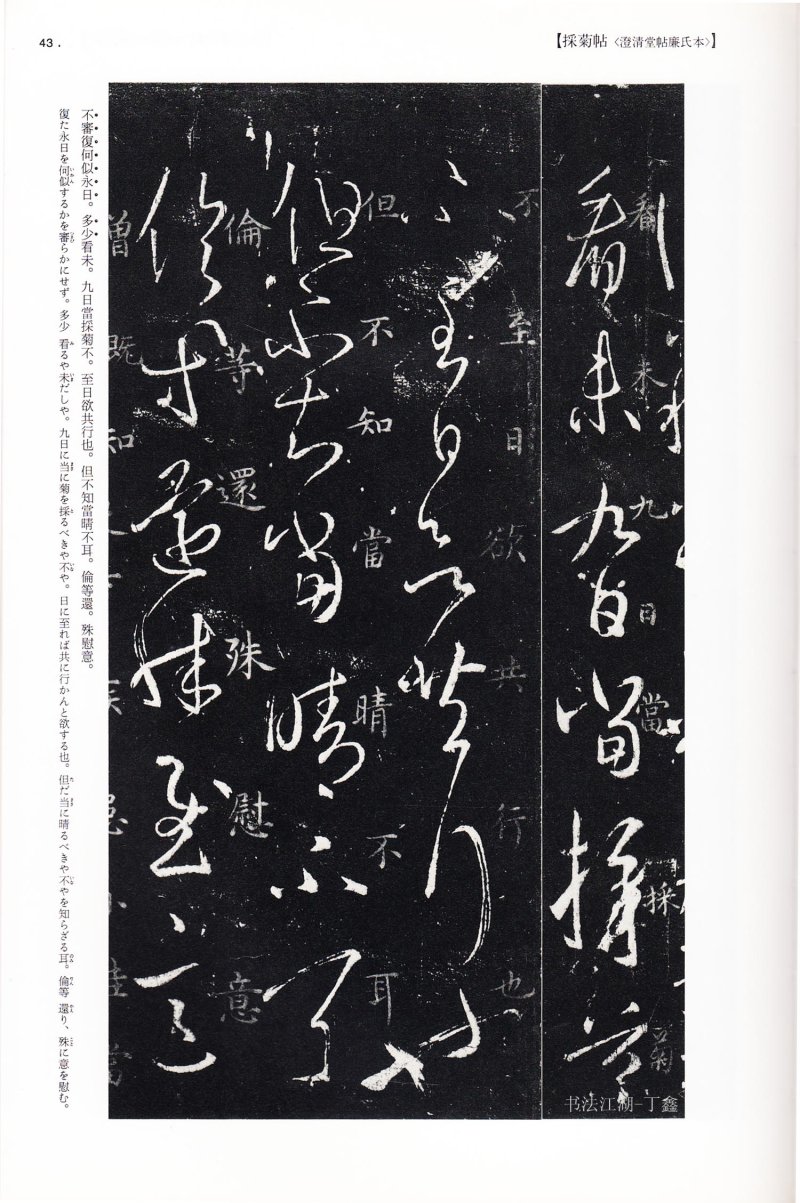 43.
【採菊帖〈澄清堂帖廉氏本〉】
看未九日當採菊
不至日欲共行也
但不知當晴不耳
倫等還殊慰意
看
未
九
日
當
採
菊
不
至
日
欲
共
行
也
但
不
知
當
晴
不
耳
倫
等
還
殊
慰
意
不審復何似永日。多少看未。九日當採菊不。至日欲共行也。但不知當晴不耳。倫等還。殊慰意。
復た永日を何似するかを審らかにせず。多少 看るや未だしや。九日に当に菊を採るべきや不や。日に至れば共に行かんと欲する也。但だ当に晴るべきや不やを知らざる耳。倫等 還り、殊に意を慰む。
书法江湖-丁鑫